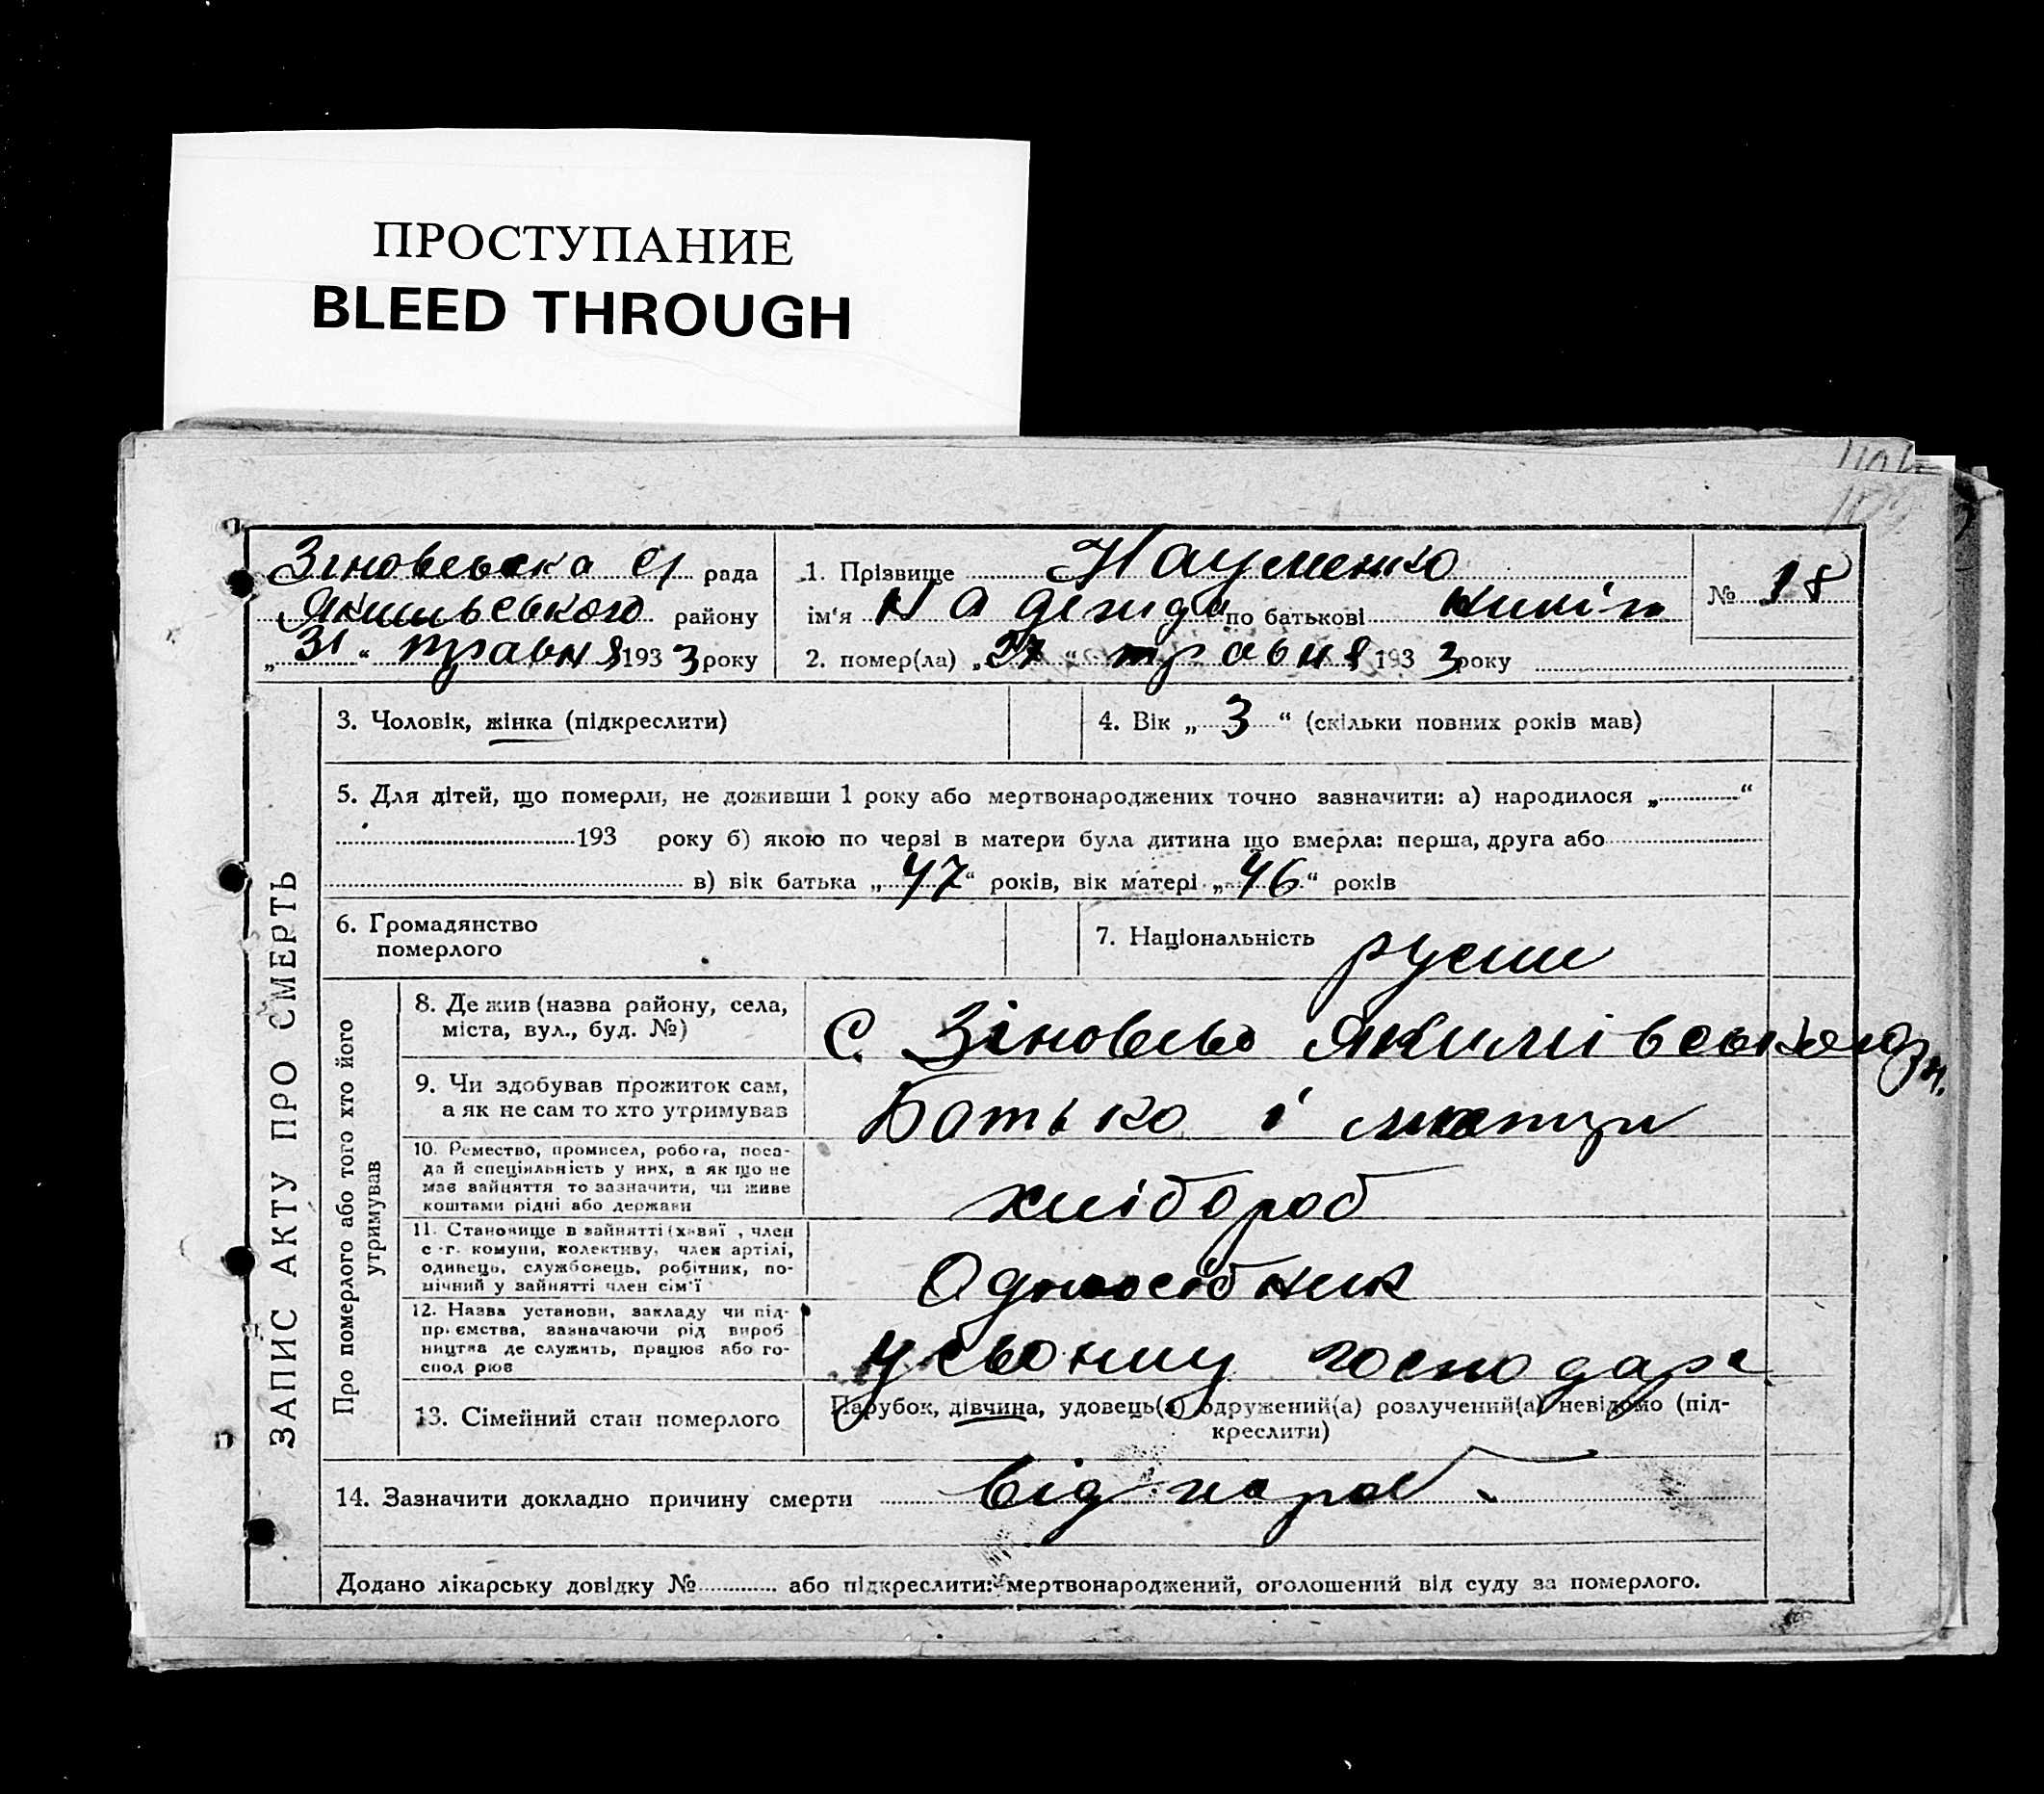 ПРОСТУПАНИЕ
BLEED THROUGH
Зіновьевска с/ рада
Якимівського району
„31“ травня 1933 року
1. Прізвище Науменко
ім‘я Надежда по батькові
2. помер(ла) „27“ травня 1933 року
№ 18
ЗАПИС АКТУ ПРО СМЕРТЬ
3. Чоловік, жінка (підкреслити)
4. Вік „3“ (скільки повних років мав)
5. Для дітей, що померли, не доживши 1 року або мертвонароджених точно зазначити: а) народилося „ “
193 року б) якою по черзі в матери була дитина що вмерла: перша, друга або
в) вік батька „47“ років, вік матері „46“ років
6. Громадянство
померлого
7. Національність руски
Про померлого або того хто його
утримував
8. Де жив (назва району, села,
міста, вул., буд. №)
С. Зіновьево Якимівського р н.
9. Чи здобував прожиток сам,
а як не сам то хто утримував
Батько і мати
10. Ремество, промисел, робота, поса-
да й спеціяльність у них, а як що не
має зайняття то зазначити, чи живе
коштами рідні або держави
хлібороб
11. Становище в зайнятті (хазяї , член
с.-г. комуни, колективу, член артілі,
одинець, службовець, робітник, по-
мічний у зайнятті член сім‘ї
Одноосібник
12. Назва установи, закладу чи під-
пр.ємства, зазначаючи рід вироб
ництва де служить, працює або го-
спод рює
у своєму господар.
13. Сімейний стан померлого
Парубок, дівчина, удовець(а) одружений(а) розлучений(а) невідомо (під-
креслити)
14. Зазначити докладно причину смерти від
Додано лікарську довідку № або підкреслити: мертвонароджений, оголошений від суду за померлого.